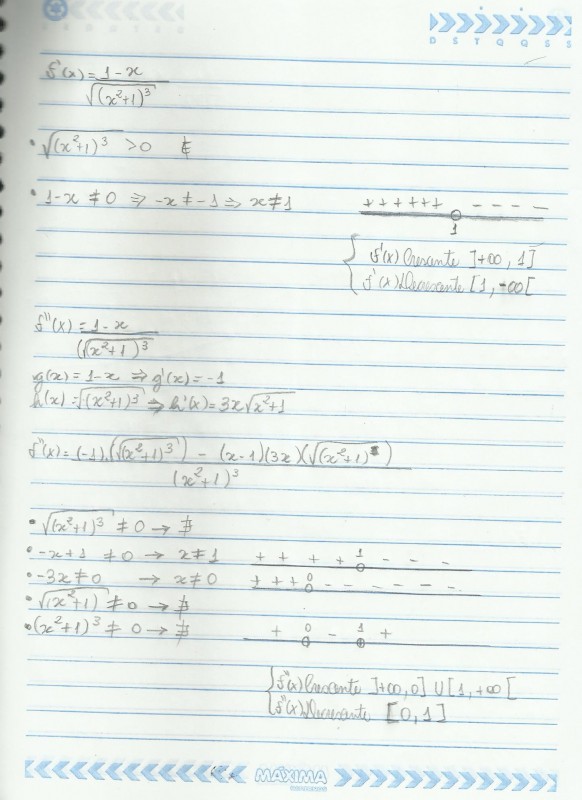 D S T Q Q S S
f'(x) = 1-x / √(x²+1)³
• √(x²+1)³ > 0 ∄
• 1-x ≠ 0 ⇒ -x ≠ -1 ⇒ x ≠ 1
+ + + + + + - - - -
1
f'(x) Crescente ]+∞, 1]
f'(x) Decrescente [1, +∞[
f''(x) = 1-x / (√(x²+1)³
g(x) = 1-x ⇒ g'(x) = -1
h(x) = √(x²+1)³ ⇒ h'(x) = 3x√x²+1
f''(x) = (-1).(√(x²+1)³) - (x-1)(3x)(√(x²+1)) / (x²+1)³
• √(x²+1)³ ≠ 0 → ∄
• -x+1 ≠ 0 → x ≠ 1 + + + + 1 - - -
• -3x ≠ 0 → x ≠ 0 + + + 0 - - - - - -
• √(x²+1) ≠ 0 → ∄
• (x²+1)³ ≠ 0 → ∄ + 0 - 1 +
f''(x) Crescente ]+∞, 0] U [1, +∞[
f''(x) Decrescente [0, 1]
MÁXIMA